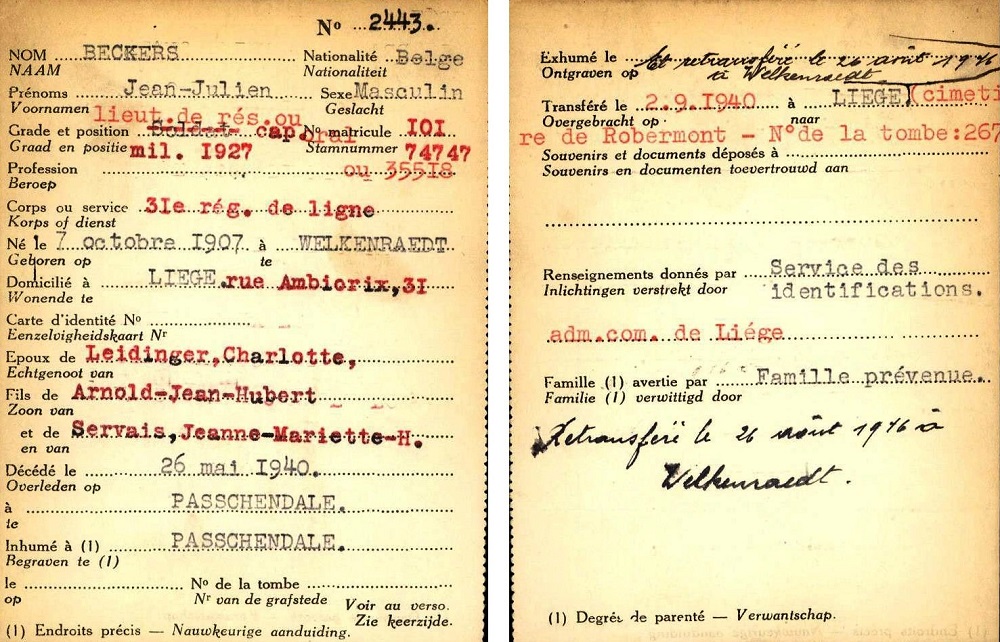 Nº 2443.
NOM BECKERS Nationalité Belge
NAAM Nationaliteit
Prénoms Jean-Julien Sexe Masculin
Voornamen Geslacht
lieut. de rés. ou
Grade et position Soldat caporal Nº matricule I0I
Graad en positie mil. I927 Stamnummer 74747
Profession ou 35518
Beroep
Corps ou service 3Ie rég. de ligne
Korps of dienst
Né le 7 octobre I907 à WELKENRAEDT
Geboren op te
Domicilié à LIEGE. rue Ambiorix,3I
Wonende te
Carte d'identité Nº
Eenzelvigheidskaart Nr
Epoux de Leidinger,Charlotte,
Echtgenoot van
Fils de Arnold-Jean-Hubert
Zoon van
et de Servais,Jeanne-Mariette-H.
en van
Décédé le 26 mai I940.
Overleden op
à PASSCHENDALE.
te
Inhumé à (1) PASSCHENDALE.
Begraven te (1)
le Nº de la tombe
op Nr van de grafstede
Voir au verso.
Zie keerzijde.
(1) Endroits précis — Nauwkeurige aanduiding.
Exhumé le Et retransféré le 26 août 1946
Ontgraven op à Welkenraedt.
Transféré le 2.9.I940 à LIEGE.(cimeti
Overgebracht op naar
re de Robermont - N°de la tombe:267
Souvenirs et documents déposés à
Souvenirs en documenten toevertrouwd aan
Renseignements donnés par Service des
Inlichtingen verstrekt door identifications.
adm.com. de Liége
Famille (1) avertie par Famille prévenue.
Familie (1) verwittigd door
Retransféré le 26 août 1946 à
Welkenraedt.
(1) Degrés de parenté — Verwantschap.